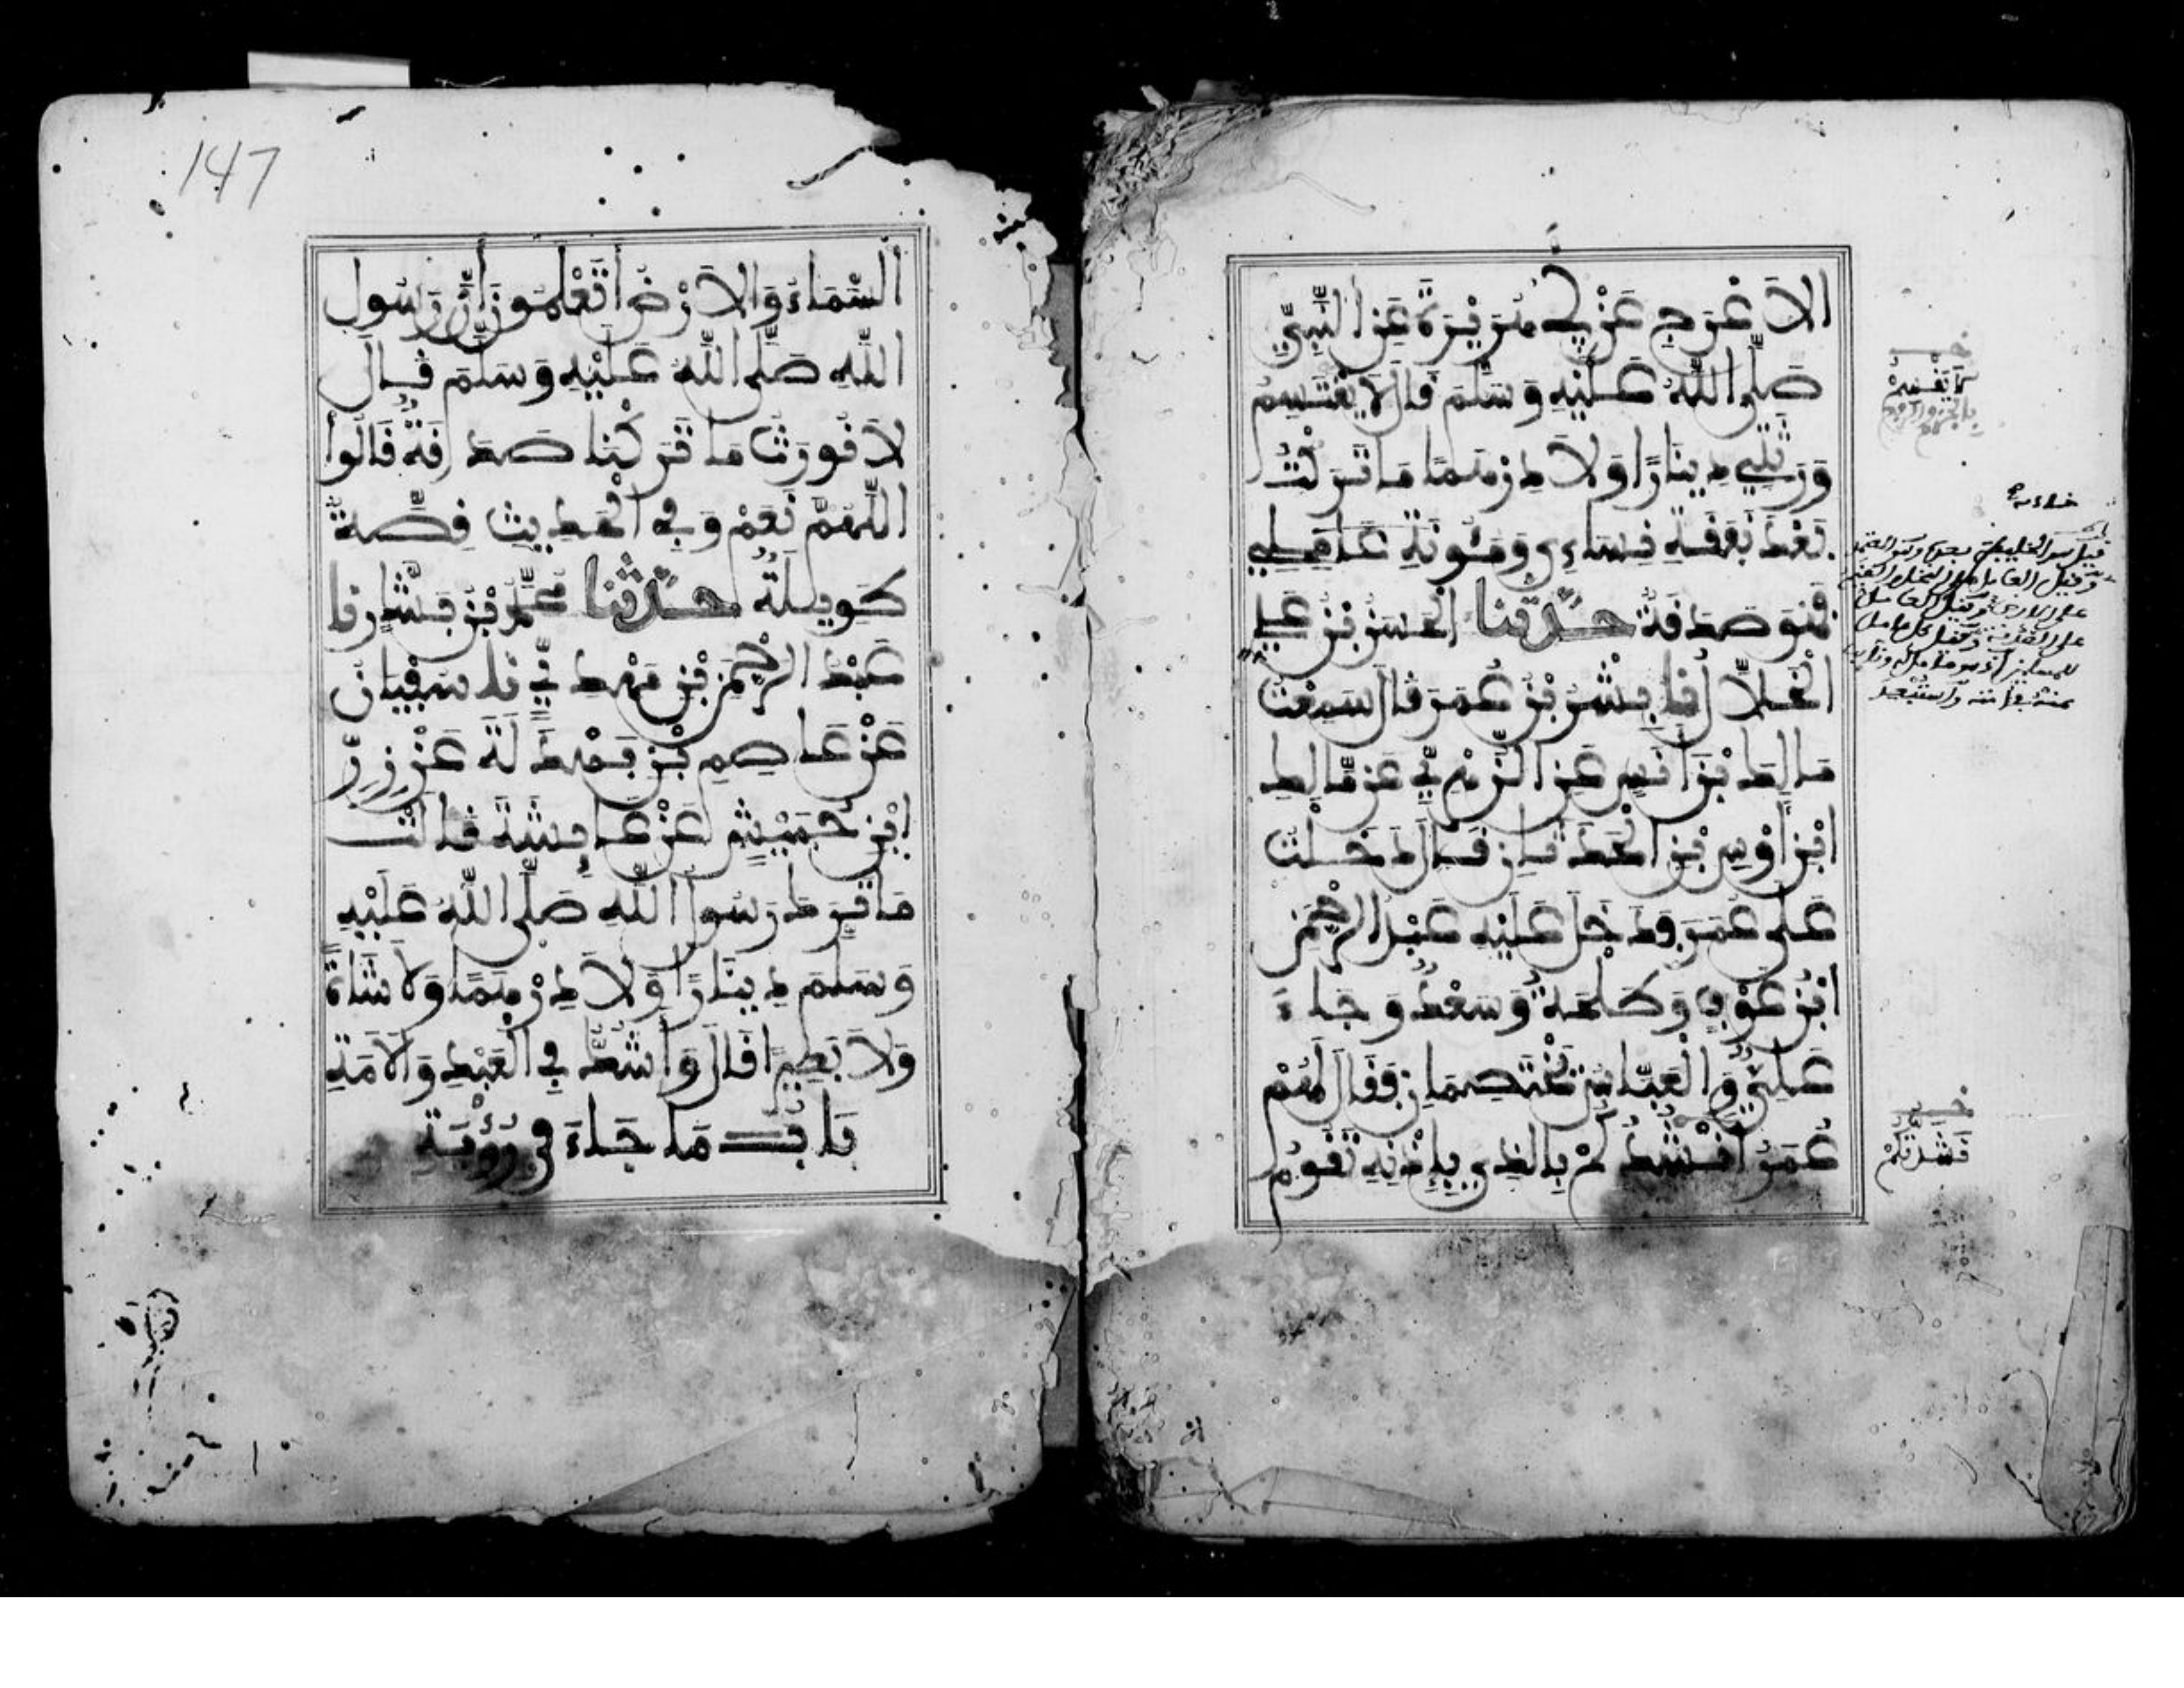 الاَعْرَجِ عَنْ أَبِي هُرَيْرَةَ عَنِ النَّبِيِّ
صَلَّى اللَّهُ عَلَيْهِ وَسَلَّمَ قَالَ لَا يَقْتَسِمُ
وَرَثَتِي دِينَارًا وَلَا دِرْهَمًا مَا تَرَكْتُ
بَعْدَ نَفَقَةِ نِسَاءِي وَمَئُونَةِ عَامِلِي
فَهُوَ صَدَقَةٌ حَدَّثَنَا الْحَسَنُ بْنُ عَلِيٍّ
الْخَلَّالُ أَنَا بِشْرُ بْنُ عُمَرَ قَالَ سَمِعْتُ
مَالِكَ بْنَ أَنَسٍ عَنِ الزُّهْرِيِّ عَنْ مَّالِكِ
ابْنِ أَوْسِ بْنِ الْحَدَثَانِ قَالَ دَخَلْتُ
عَلَى عُمَرَ فَدَخَلَ عَلَيْهِ عَبْدُ الرَّحْمَنِ
ابْنُ عَوْفٍ وَطَلْحَةُ وَسَعْدٌ وَجَاءَ
عَلِيٌّ وَالْعَبَّاسُ يَخْتَصِمَانِ فَقَالَ لَهُمْ
عُمَرُ أَنْشُدُكُمْ بِالَّذِي بِإِذْنِهِ تَقُومُ
لَا تَقْسِمُ
نَشَدْتُكُمْ
147
السَّمَاءُ وَالاَرْضُ أَتَعْلَمُونَ أَنَّ رَسُولَ
اللَّهِ صَلَّى اللَّهُ عَلَيْهِ وَسَلَّمَ قَالَ
لَا نُورَثُ مَا تَرَكْنَا صَدَقَةٌ قَالُوا
اللَّهُمَّ نَعَمْ وَفِي الْحَدِيثِ قِصَّةٌ
طَوِيلَةٌ حَدَّثَنَا مُحَمَّدُ بْنُ بَشَّارٍ نَا
عَبْدُ الرَّحْمَنِ بْنُ مَهْدِيٍّ نَا سُفْيَانُ
عَنْ عَاصِمِ بْنِ بَهْدَلَةَ عَنْ زِرِّ
ابْنِ حُبَيْشٍ عَنْ عَائِشَةَ قَالَتْ
مَا تَرَكَ رَسُولُ اللَّهِ صَلَّى اللَّهُ عَلَيْهِ
وَسَلَّمَ دِينَارًا وَلَا دِرْهَمًا وَلَا شَاةً
وَلَا بَعِيرًا قَالَ وَأَشُكُّ فِي الْعَبْدِ وَالاَمَةِ
بَابُ مَا جَاءَ فِي رُؤْيَةِ